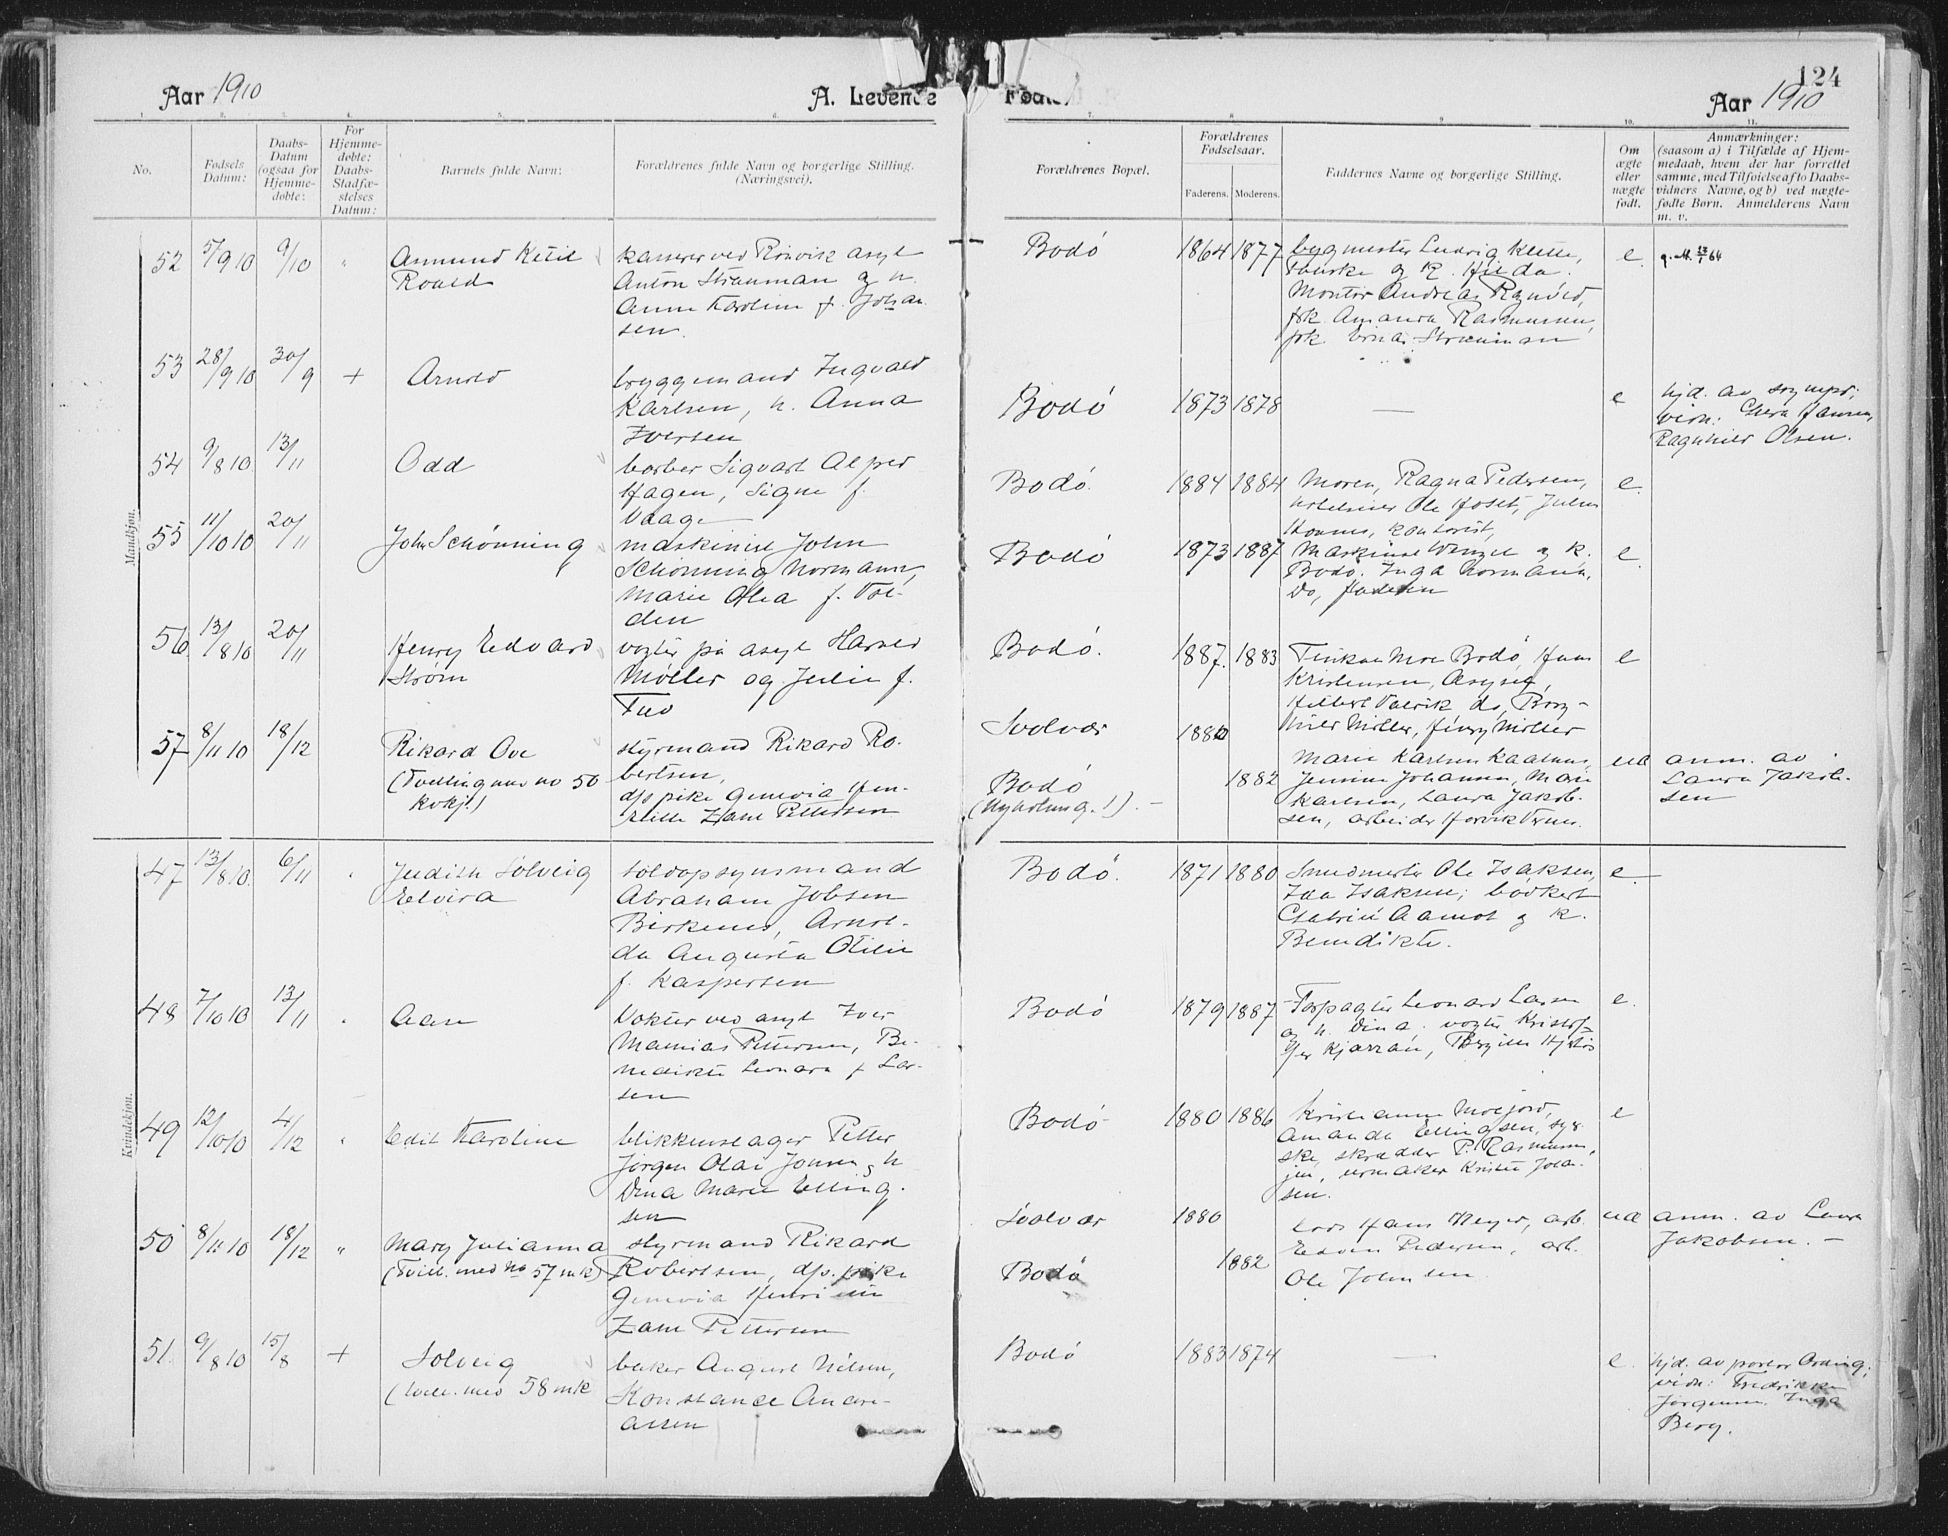 Aar 1910
A. Levende
Fødte.
124
Aar 1910
1. 2. 3. 4. 5. 6. 7. 8 9 10. 11.
No.
Fødsels Datum:
Daabs-Datum (ogsaa for Hjemme-døbte:
For Hjemme-døbte: Daabs-Stadfæ-stelses Datum:
Barnets fulde Navn:
Forældrenes fulde Navn og borgerlige Stilling. (Næringsvei).
Forældrenes Bopæl.
Forældrenes Fødselsaar.
Faderens. Moderens.
Faddernes Navne og borgerlige Stilling.
Om ægte eller uægte født.
Anmærkninger:
(saasom a) i Tilfælde af Hjem-
medaab, hvem der har forrettet
samme, med Tilføielse af to Daabs-
vidners Navne, og b) ved uægte-
fødte Børn. Anmelderens Navn
m. v.
Mandkjøn.
52 5/9 10 9/10 " Amund Ketil
Roald
kasserer ved Rønvik asyl
Anton Strauman og h.
Anna Karoline f. Johan-
sen.
Bodö 1864 1877
bygmester Ludvig Klette,
og k. Hilda.
Montör Andreas
frk. Amanda Rasmussen,
frk. Strauman
e.
53 28/9 10 30/9 + Arnold
bryggemand Ingvald
Karlsen, h. Anna
Iversen
Bodö 1873 1878 —
e hjd. av
vidn: Hansen,
Ragnhild Olsen.
54 9/8 10 13/11 Odd
barber Sigvart Alfred
Hagen, Signe f.
Vaage
Bodö. 1884 1884
Moren, Ragna Pedersen,
Ole Hoset, Julius
kontorist,
e.
55 11/10 10 20/11 John Schönning
maskinist John
Schønning Normann,
Marie Olea f. Vol-
den
Bodö 1873 1887
Maskinist Wenzel og k.
Bodö. Inga Normann,
Do,
e.
56 13/8 10 20/11 Henry Edvard
Strøm
vogter på asyl Harald
Møller og Julie f.
Bodö. 1887. 1883
Moe Bodö, Hans
Kristensen, Asyset,
do, Borg-
hild Møller, Henry Møller
e
57 8/11 10 18/12 Rikard Ove
(Tvilling med no 50
kvkj.)
styrmand Rikard Ro-
bertsen,
d/s pike Genevia Hen-
Zane Pettersen
Svolvær 1880
Bodö 1882
(Nyholmsg. 1). —
Marie Karlsen
Jennine Johansen, Marie
Karlsen, Laura Jakob-
sen, arbeider
ud anm. av
Laura Jakob-
sen
Kvindekjøn.
47 13/8 10. 6/11 " Judith Solveig
Elvira
toldopsynsmand
Abraham Jobsen
Birkenes, Arnol-
da Augusta Otilie
f. Kaspersen
Bodö. 1871 1880
Smedmester Ole Isaksen,
Ida Isaksen; bödker
Aamot og k.
Benedikte.
e. —
48 7/10 10 13/11 " Aase
Vokter ved asyl Iver
Mathias Pettersen, Be-
nedikte Leonara f Lar-
sen
Bodö 1879 1887
Forpagter Leonard Larsen
og h. Dina; vogter Kristof-
fer
e.
49 12/10 10 4/12 " Edit Karoline
blikkenslager Petter
Jörgen Olai Jensen, h
Dina Marie Elling-
sen
Bodö 1880 1886
Amanda Ellingsen, syer-
ske, skrædder P. Rasmussen,
urmaker Johan-
sen.
e
50 8/11 10 18/12 " Mary Julianna
(Tvill. med No 57 mk)
styrmand Rikard
Robertsen, d/s. pike
Genevia
Zane Pettersen
Svolvær 1880
Bodö 1882
Hans Meyer, arb.
Pedersen, arb.
Ole Johnsen
ud anm. av Laura
Jakobsen. —
51. 9/8 10 15/8 + Solveig
(tvill. med 58 mk
baker August Nilsen,
Konstance Andre-
assen
Bodö 1883 1874 —
e. hjd. av pastor Ording;
vidn: Fredrikke
Jörgensen. Inga
Berg.